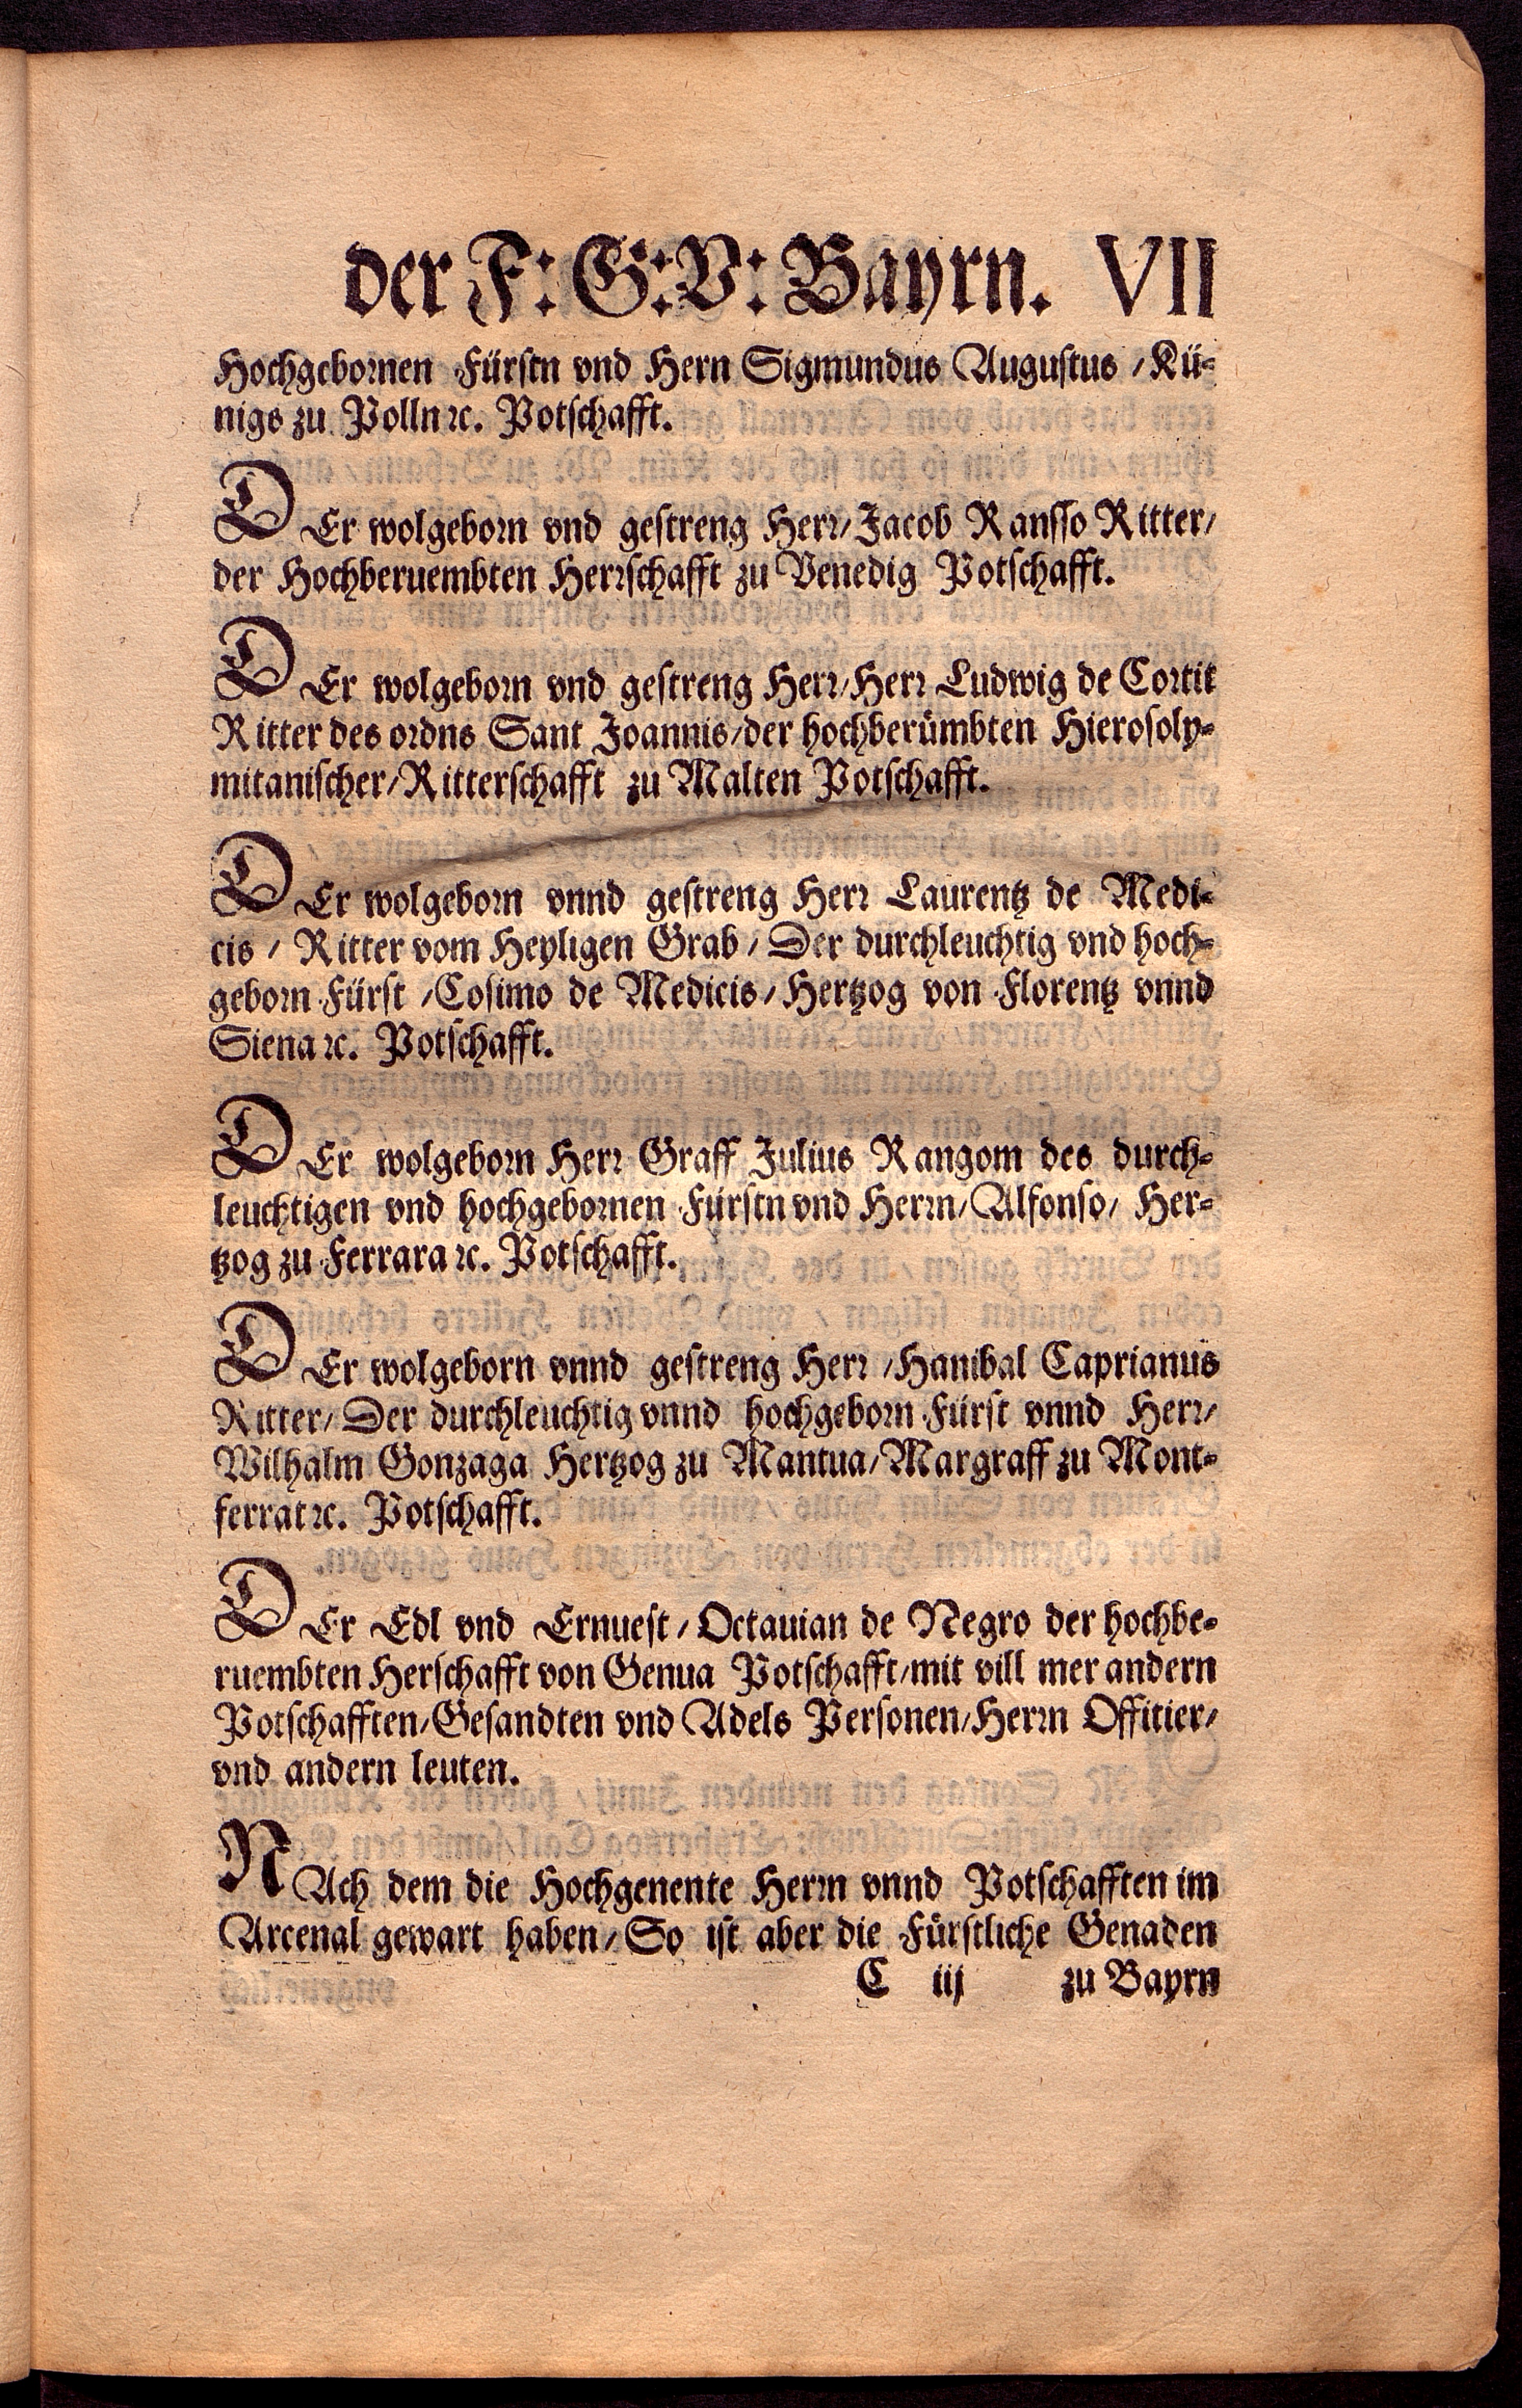 der F: G: V: Bayrn. VII
Hochgebornen Fürstn vnd Hern Sigmundus Augustus / Kü-
nigs zu Polln ꝛc. Potschafft.
DEr wolgeborn vnd gestreng Herr / Jacob Ransso Ritter /
der Hochberuembten Herrschafft zu Venedig Potschafft.
DEr wolgeborn vnd gestreng Herr / Herr Ludwig de Cortit
Ritter des ordns Sant Joannis / der hochberümbten Hierosoly-
mitanischer / Ritterschafft zu Malten Potschafft.
DEr wolgeborn vnnd gestreng Herr Laurentz de Medi-
cis / Ritter vom Heyligen Grab / Der durchleuchtig vnd hoch-
geborn Fürst / Cosimo de Medicis / Hertzog von Florentz vnnd
Siena ꝛc. Potschafft.
DEr wolgeborn Herr Graff Julius Rangom des durch-
leuchtigen vnd hochgebornen Fürstn vnd Herrn / Alfonso / Her-
tzog zu Ferrara ꝛc. Potschafft.
DEr wolgeborn vnnd gestreng Herr / Hanibal Caprianus
Ritter / Der durchleuchtig vnnd hochgeborn Fürst vnnd Herr /
Wilhalm Gonzaga Hertzog zu Mantua / Margraff zu Mont-
ferrat ꝛc. Potschafft.
DEr Edl vnd Ernuest / Octauian de Negro der hochbe-
ruembten Herschafft von Genua Potschafft / mit vill mer andern
Potschafften / Gesandten vnd Adels Personen / Herrn Offitier /
vnd andern leuten.
NAch dem die Hochgenente Herrn vnnd Potschafften im
Arcenal gewart haben / So ist aber die Fürstliche Genaden
C iij zu Bayrn